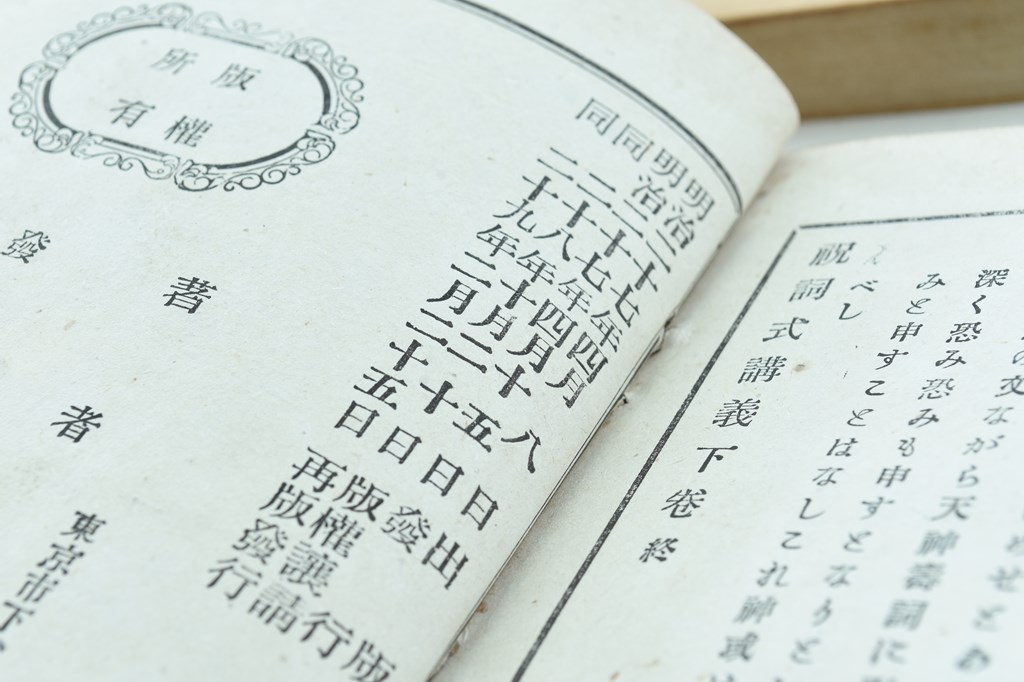 の文ながら天神壽詞に
深く恐み恐みも申すとなりと
みと申すことはなしこれ神或
べし
祝詞式講義下卷終
明治二十七年四月八日出版
明治二十七年四月十五日發行
同二十八年十月二十日版權讓請
同二十九年二月二十五日再版發行
版權
所有
著者
東京市下
發